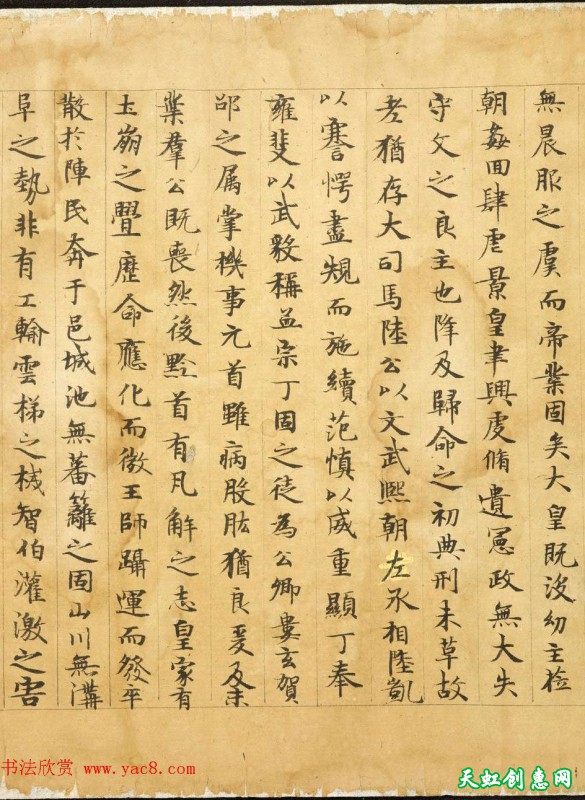 無晨服之虞而帝業固矣大皇既没幼主莅
朝姦回肆虐景皇聿興虔脩遺憲政無大失
守文之良主也降及歸命之初典刑未草故
老猶存大司馬陸公以文武熙朝左丞相陸凱
以謇愕盡規而施績范慎以威重顯丁奉
雍斐以武毅稱孟宗丁固之徒為公卿婁玄賀
邵之属掌機事元首雖病股肱猶良爰及末
葉羣公既喪然後黔首有凡解之志皇家有
土崩之釁歷命應化而微王師躡運而發卒
散於陣民奔于邑城池無蕃籬之固山川無溝
阜之勢非有工輸雲梯之械智伯灌激之害
书法欣赏 www.yac8.com
天虹创惠网